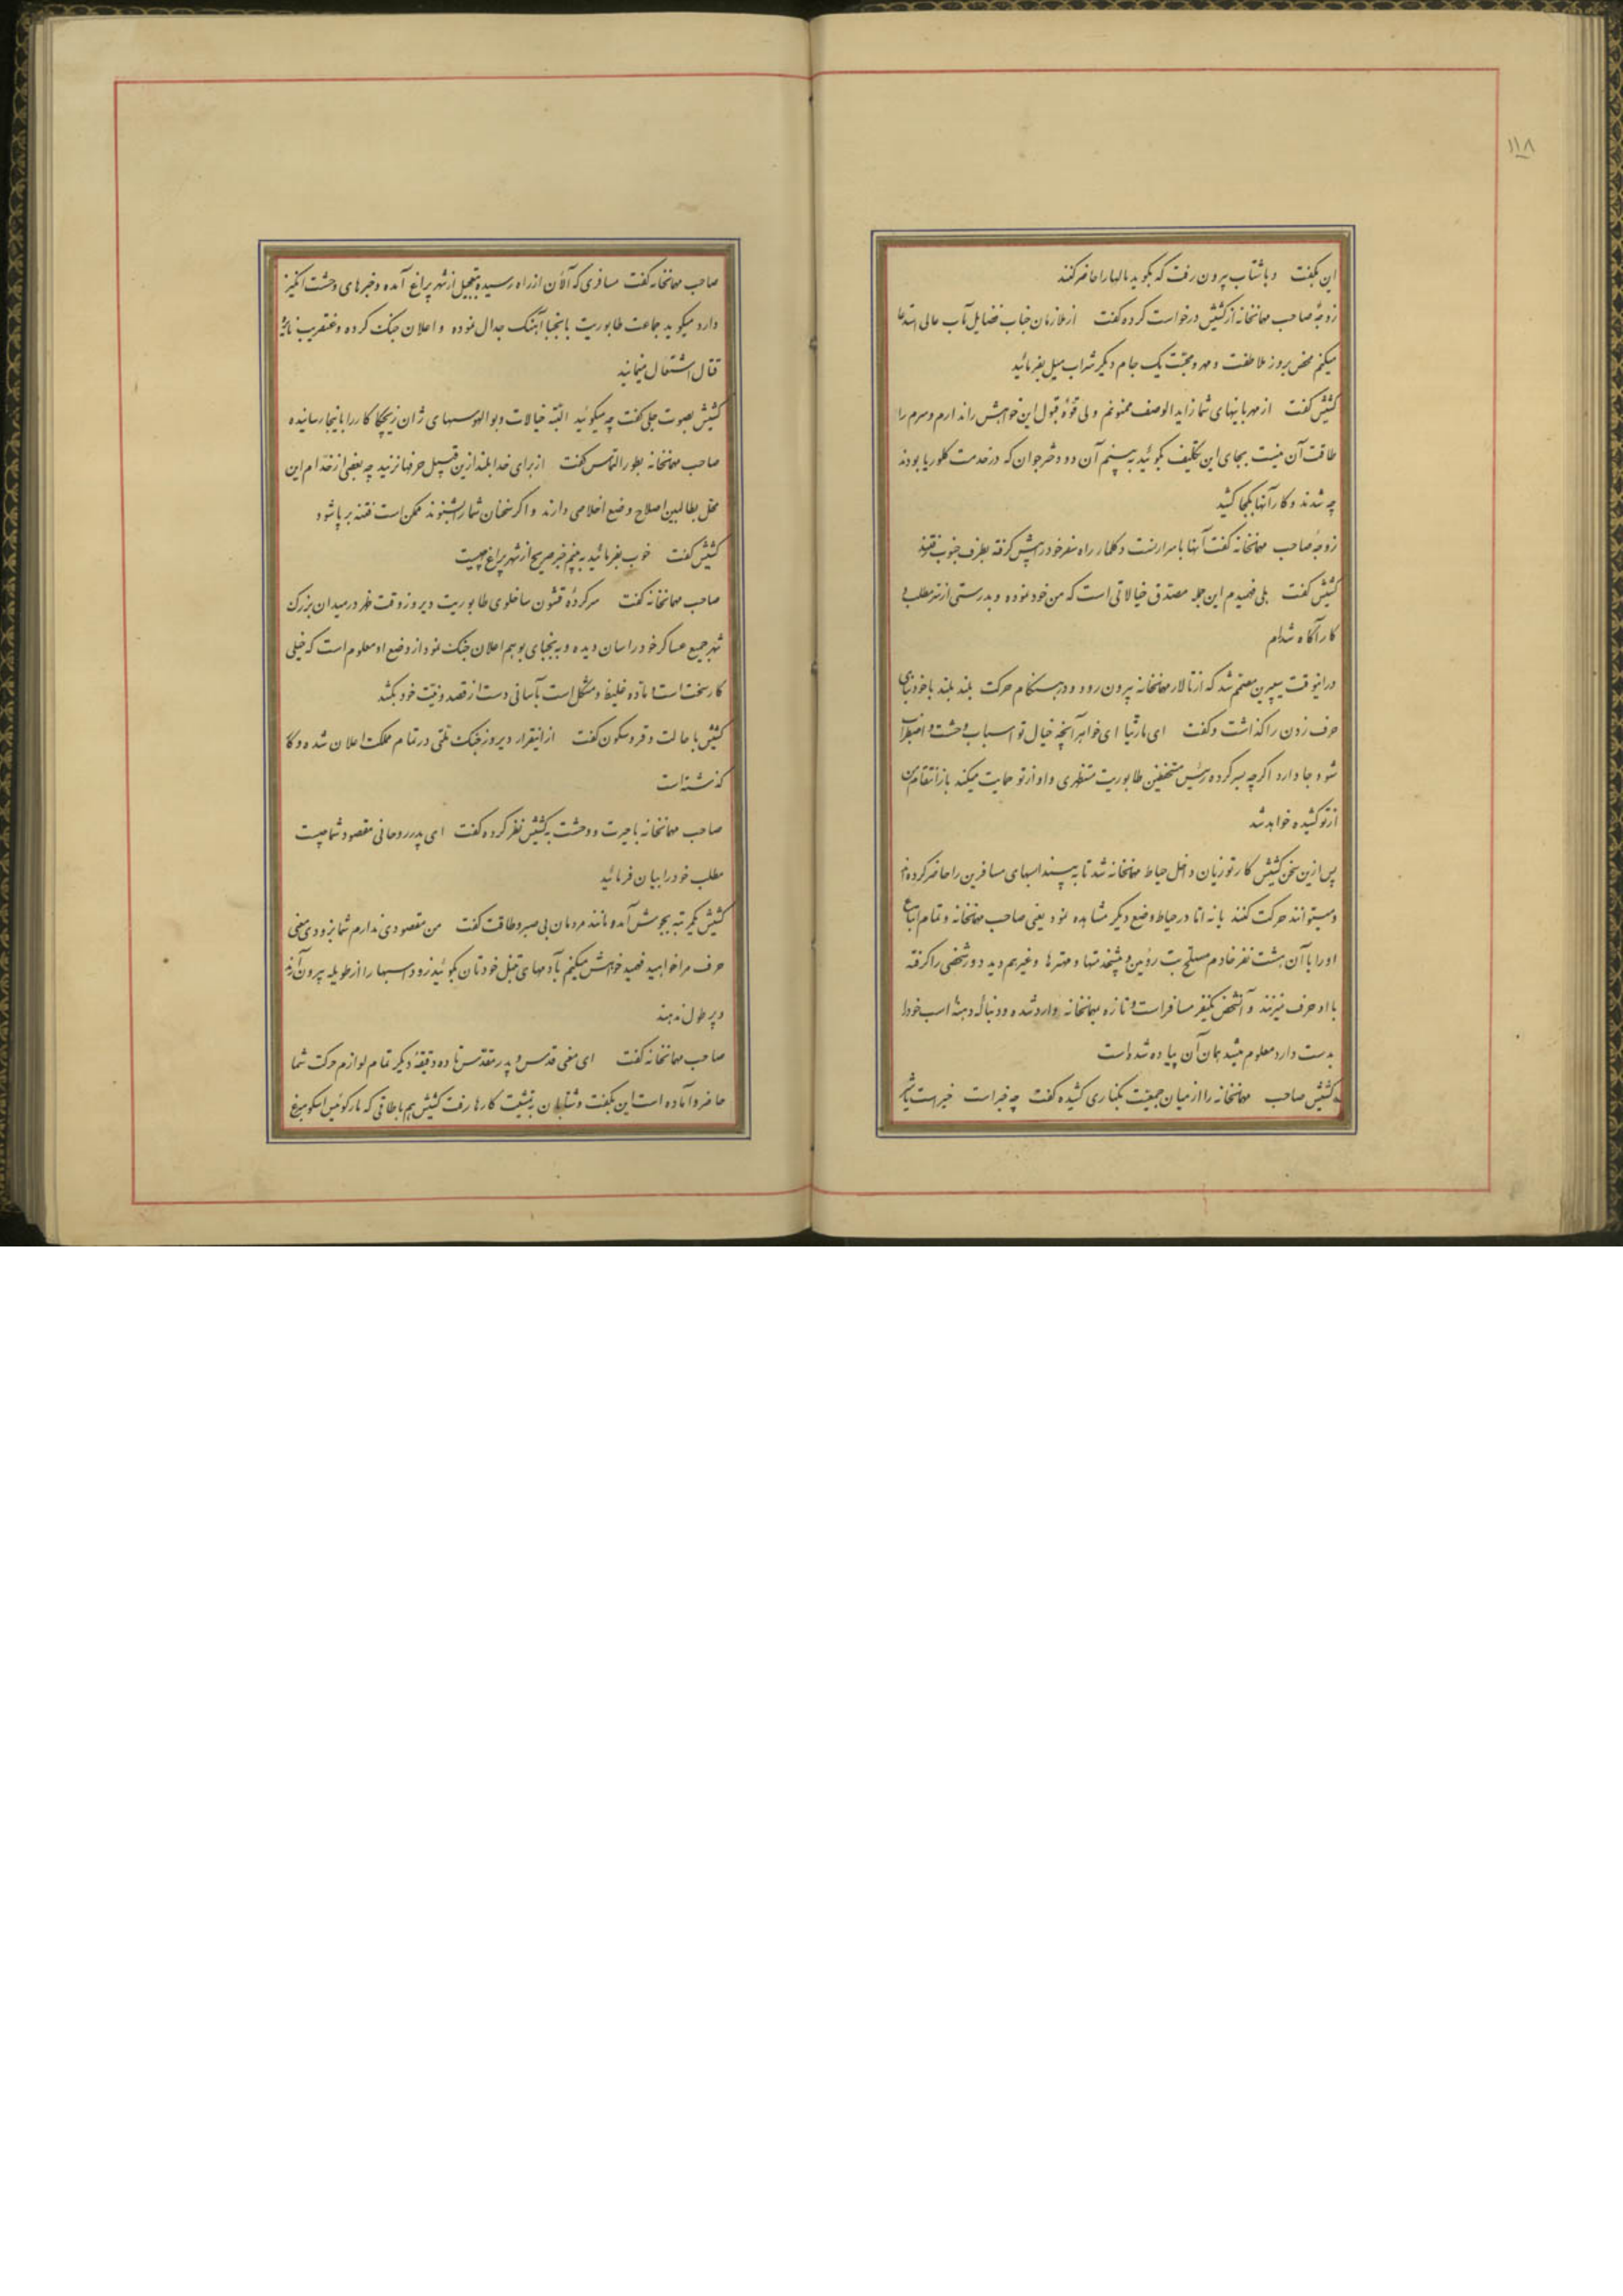 ۱۱۸
این بگفت و باشتاب بیرون رفت که بگوید مالها را حاضر کنند
زوجهٔ صاحب مهمانخانه از کشیش درخواست کرده گفت از ملازمان جناب فضایل مآب عالی استدعا
میکنم محض بروز ملاطفت و مهر و محبت یک جام دیگر شراب میل بفرمائید
کشیش گفت از مهربانیهای شما زاید الوصف ممنونم ولی قوهٔ قبول این خواهش را ندارم و سرم را
طاقت آن نیست بجای این تکلیف بگوئید ببینم آن دو دختر جوان که در خدمت کلوریا بودند
چه شدند و کار آنها بکجا کشید
زوجهٔ صاحب مهمانخانه گفت آنها با سرارنست دکلمار راه سفر خود در پیش گرفته بطرف جنوب رفتند
کشیش گفت بلی فهمیدم این جمله مصدق خیالاتی است که من خود نموده و بدرستی از سر مطلب و
کار آگاه شده‌ام
در اینوقت سیپرین مصمم شد که از تالار مهمانخانه بیرون رود و در هنگام حرکت بلند بلند با خود بنای
حرف زدن را گذاشت و گفت ای مارتیا ای خواهر آنچه خیال تو اسباب وحشت و اضطراب
شود جا دارد اگر چه بسرکرده رئیس متخفین طابوریت مستظهری و او از تو حمایت میکند باز انتقام من
از تو کشیده خواهد شد
پس ازین سخن کشیش کارتوزیان داخل حیاط مهمانخانه شد تا به بیند اسبهای مسافرین را حاضر کرده‌اند
و میتوانند حرکت کنند یا نه اما در حیاط وضع دیگر مشاهده نمود یعنی صاحب مهمانخانه و تمام اتباع
او را با آن هشت نفر خادم مسلح بت روئین و پیشخدمتها و مهترها و غیرهم دید دور شخصی را گرفته
با او حرف میزنند و آنشخص یکنفر مسافر است و تازه بمهمانخانه وارد شده و دنباله دهنهٔ اسب خود را
بدست دارد معلوم میشد همان آن پیاده شده است
کشیش صاحب مهمانخانه را از میان جمعیت بکناری کشیده گفت چه خبر است خیر است باشد
صاحب مهمانخانه گفت مسافری که الآن از راه رسیده بتعجیل از شهر پراغ آمده و خبرهای وحشت انگیز
دارد میگوید جماعت طابوریت با نجبا آهنگ جدال نموده و اعلان جنگ کرده و عنقریب نایرهٔ
قتال اشتعال مینماید
کشیش بصوت جلی گفت چه میگوئید البته خیالات و بوالهوسیهای ژان زیچکا کار را باینجا رسانیده
صاحب مهمانخانه بطور التماس گفت از برای خدا بلند ازین قبیل حرفها نزنید چه بعضی از خدام این
محل بطالبین اصلاح وضع اخلاصی دارند و اگر سخنان شما را بشنوند ممکن است فتنه بر پا شود
کشیش گفت خوب بفرمائید ببینم خبر صریح از شهر پراغ چیست
صاحب مهمانخانه گفت سرکردهٔ قشون ساخلوی طابوریت دیروز وقت ظهر در میدان بزرگ
شهر جمیع عساکر خود را سان دیده و به نجبای بوهم اعلان جنگ نمود از وضع او معلوم است که خیلی
کار سخت است ماده غلیظ و مشکل است بآسانی دست از قصد و نیت خود بکشد
کشیش با حالت وقر و سکون گفت از اینقرار دیروز جنگ ملتی در تمام مملکت اعلان شده و کار
گذشته است
صاحب مهمانخانه با حیرت و وحشت بکشیش نظر کرده گفت ای پدر روحانی مقصود شما چیست
مطلب خود را بیان فرمائید
کشیش یکمرتبه بجوش آمده مانند مردمان بی صبر و طاقت گفت من مقصودی ندارم شما بزودی معنی
حرف مرا خواهید فهمید خواهش میکنم بآدمهای تنبل خودتان بگوئید زود اسبها را از طویله بیرون آرند
و پر طول ندهند
صاحب مهمانخانه گفت ای مغی قدس و پدر مقدس تا ده دقیقهٔ دیگر تمام لوازم حرکت شما
حاضر و آماده است این بگفت و شتابان به تمشیت کارها رفت کشیش هم باطاقی که مارکوئیس اسکومبرغ